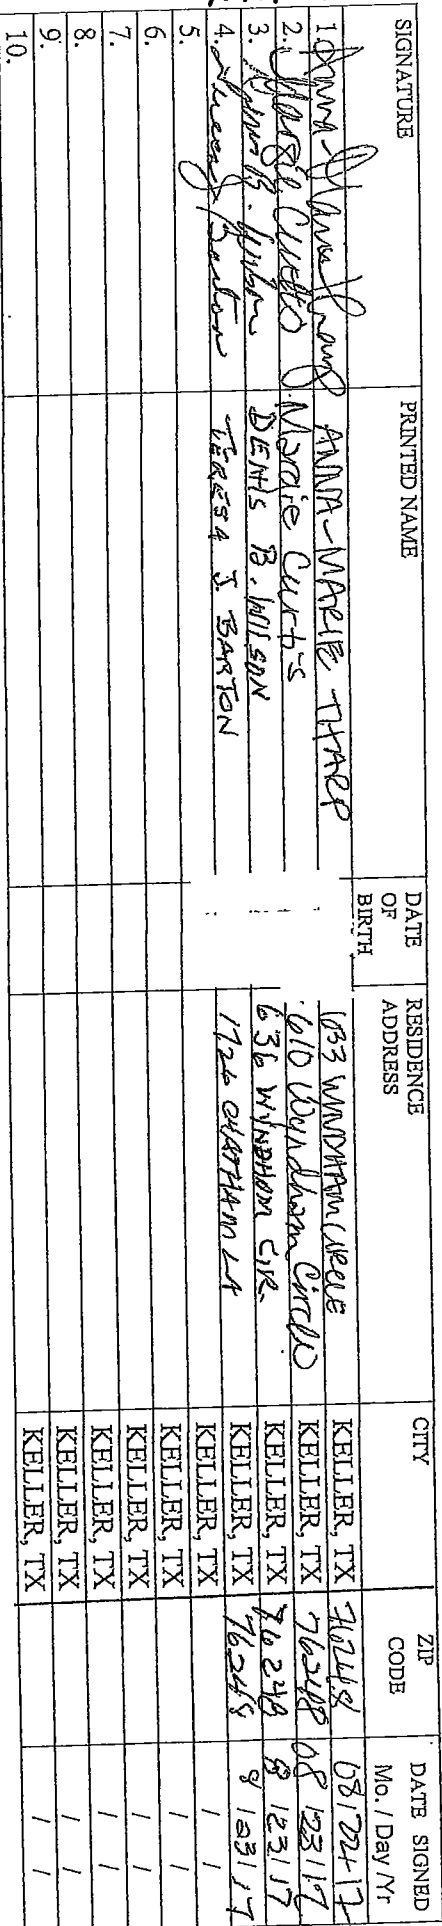 SIGNATURE PRINTED NAME DATE OF BIRTH RESIDENCE ADDRESS CITY ZIP CODE DATE SIGNED Mo. / Day / Yr
1. ANNA-MARIE THARP 633 WYNDHAM CIRCLE KELLER, TX 76248 08/22/17
2. Margie Curtis Margie Curtis 610 Wyndham Circle KELLER, TX 76248 08/23/17
3. DENIS B. WILSON 636 WYNDHAM CIR. KELLER, TX 76248 8/23/17
4. Teresa J Barton TERESA J. BARTON 1726 CHATHAM LN KELLER, TX 76248 8/23/17
5. KELLER, TX / /
6. KELLER, TX / /
7. KELLER, TX / /
8. KELLER, TX / /
9. KELLER, TX / /
10. KELLER, TX / /